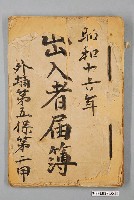 昭和十六年
出入者届簿
外埔第五保第一甲